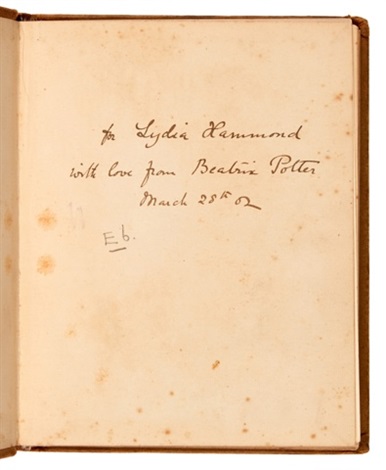 for Lydia Hammond
with love from Beatrix Potter
March 28th 02
E 6.